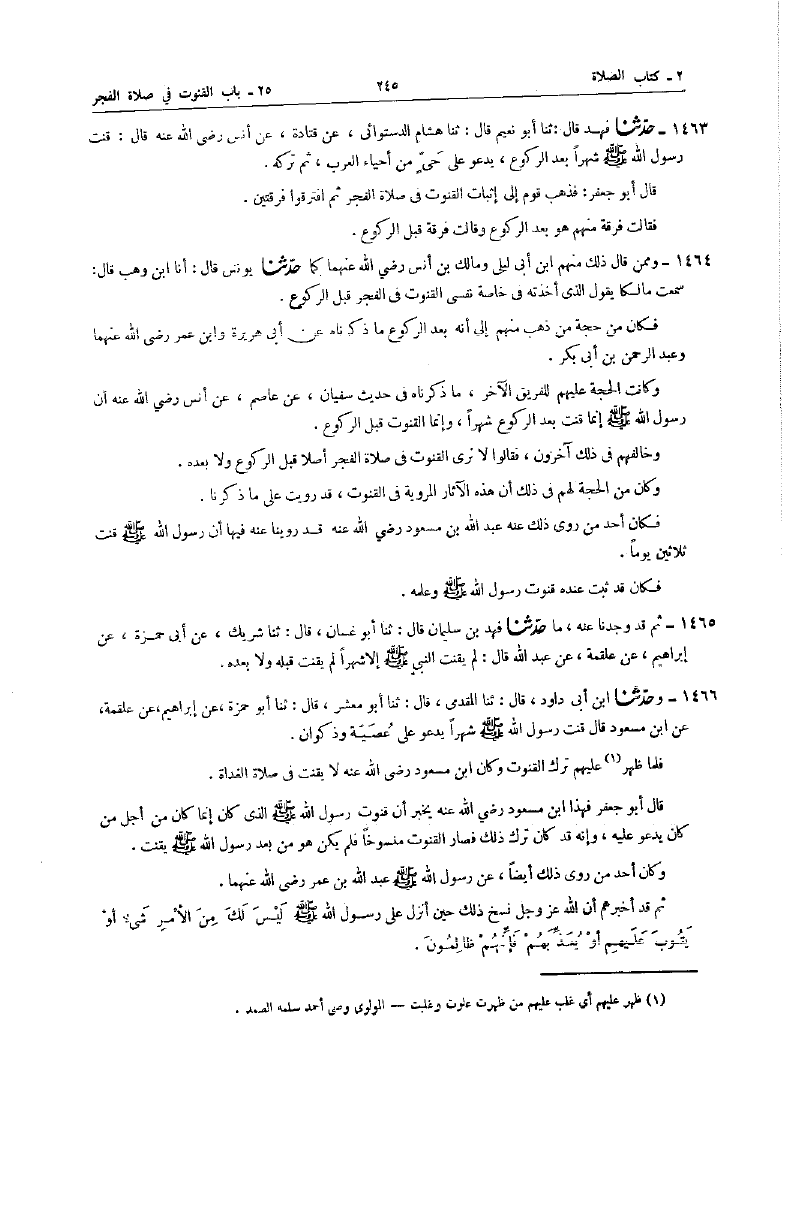 ٢ ـ كتاب الصلاة ٢٤٥ ٢٥ ـ باب القنوت في صلاة الفجر
١٤٦٣ ـ حدّثنا فهد قال : ثنا أبو نعيم قال : ثنا هشام الدستوائى ، عن قتادة ، عن أنس رضى الله عنه قال : قنت
رسول الله ﷺ شهراً بعد الركوع ، يدعو على حَىٍّ من أحياء العرب ، ثم تركه .
قال أبو جعفر : فذهب قوم إلى إثبات القنوت في صلاة الفجر ثم افترقوا فرقتين .
فقالت فرقة منهم هو بعد الركوع وقالت فرقة قبل الركوع .
١٤٦٤ ـ وممن قال ذلك منهم ابن أبى ليلى ومالك بن أنس رضي الله عنهما كما حدّثنا يونس قال : أنا ابن وهب قال :
سمعت مالكا يقول الذى أخذته فى خاصة نفسى القنوت فى الفجر قبل الركوع .
فكان من حجة من ذهب منهم إلى أنه بعد الركوع ما ذكرناه عن أبى هريرة وابن عمر رضى الله عنهما
وعبد الرحمن بن أبى بكر .
وكانت الحجة عليهم للفريق الآخر ، ما ذكرناه فى حديث سفيان ، عن عاصم ، عن أنس رضي الله عنه أن
رسول الله ﷺ إنما قنت بعد الركوع شهراً ، وإنما القنوت قبل الركوع .
وخالفهم فى ذلك آخرون ، فقالوا لا نرى القنوت فى صلاة الفجر أصلا قبل الركوع ولا بعده .
وكان من الحجة لهم فى ذلك أن هذه الآثار المروية فى القنوت ، قد رويت على ما ذكرنا .
فكان أحد من روى ذلك عنه عبد الله بن مسعود رضي الله عنه قد روينا عنه فيها أن رسول الله ﷺ قنت
ثلاثين يوماً .
فكان قد ثبت عنده قنوت رسول الله ﷺ وعلمه .
١٤٦٥ ـ ثم قد وجدنا عنه ، ما حدّثنا فهد بن سليمان قال : ثنا أبو غسان ، قال : ثنا شريك ، عن أبى حمزة ، عن
إبراهيم ، عن علقمة ، عن عبد الله قال : لم يقنت النبي ﷺ إلا شهراً لم يقنت قبله ولا بعده .
١٤٦٦ ـ وحدّثنا ابن أبى داود ، قال : ثنا المقدمى ، قال : ثنا أبو معشر ، قال : ثنا أبو حمزة ، عن إبراهيم ، عن علقمة ،
عن ابن مسعود قال قنت رسول الله ﷺ شهراً يدعو على عُصَيَّة وذكوان .
فلما ظهر (١) عليهم ترك القنوت وكان ابن مسعود رضى الله عنه لا يقنت فى صلاة الغداة .
قال أبو جعفر فهذا ابن مسعود رضي الله عنه يخبر أن قنوت رسول الله ﷺ الذى كان إنما كان من أجل من
كان يدعو عليه ، وإنه قد كان ترك ذلك فصار القنوت منسوخاً فلم يكن هو من بعد رسول الله ﷺ يقنت .
وكان أحد من روى ذلك أيضاً ، عن رسول الله ﷺ عبد الله بن عمر رضي الله عنهما .
ثم قد أخبرهم أن الله عز وجل نسخ ذلك حين أنزل على رسول الله ﷺ لَيْسَ لَكَ مِنَ الْأَمْرِ شَىْءٌ أَوْ
يَتُوبَ عَلَيهِم أَوْ يُعَذِّبَهُمْ فَإِنَّهُمْ ظَالِمُونَ .
(١) ظهر عليهم أى غلب عليهم من ظهرت علوت وغلبت — المولوى وصى أحمد سلمه الصمد .